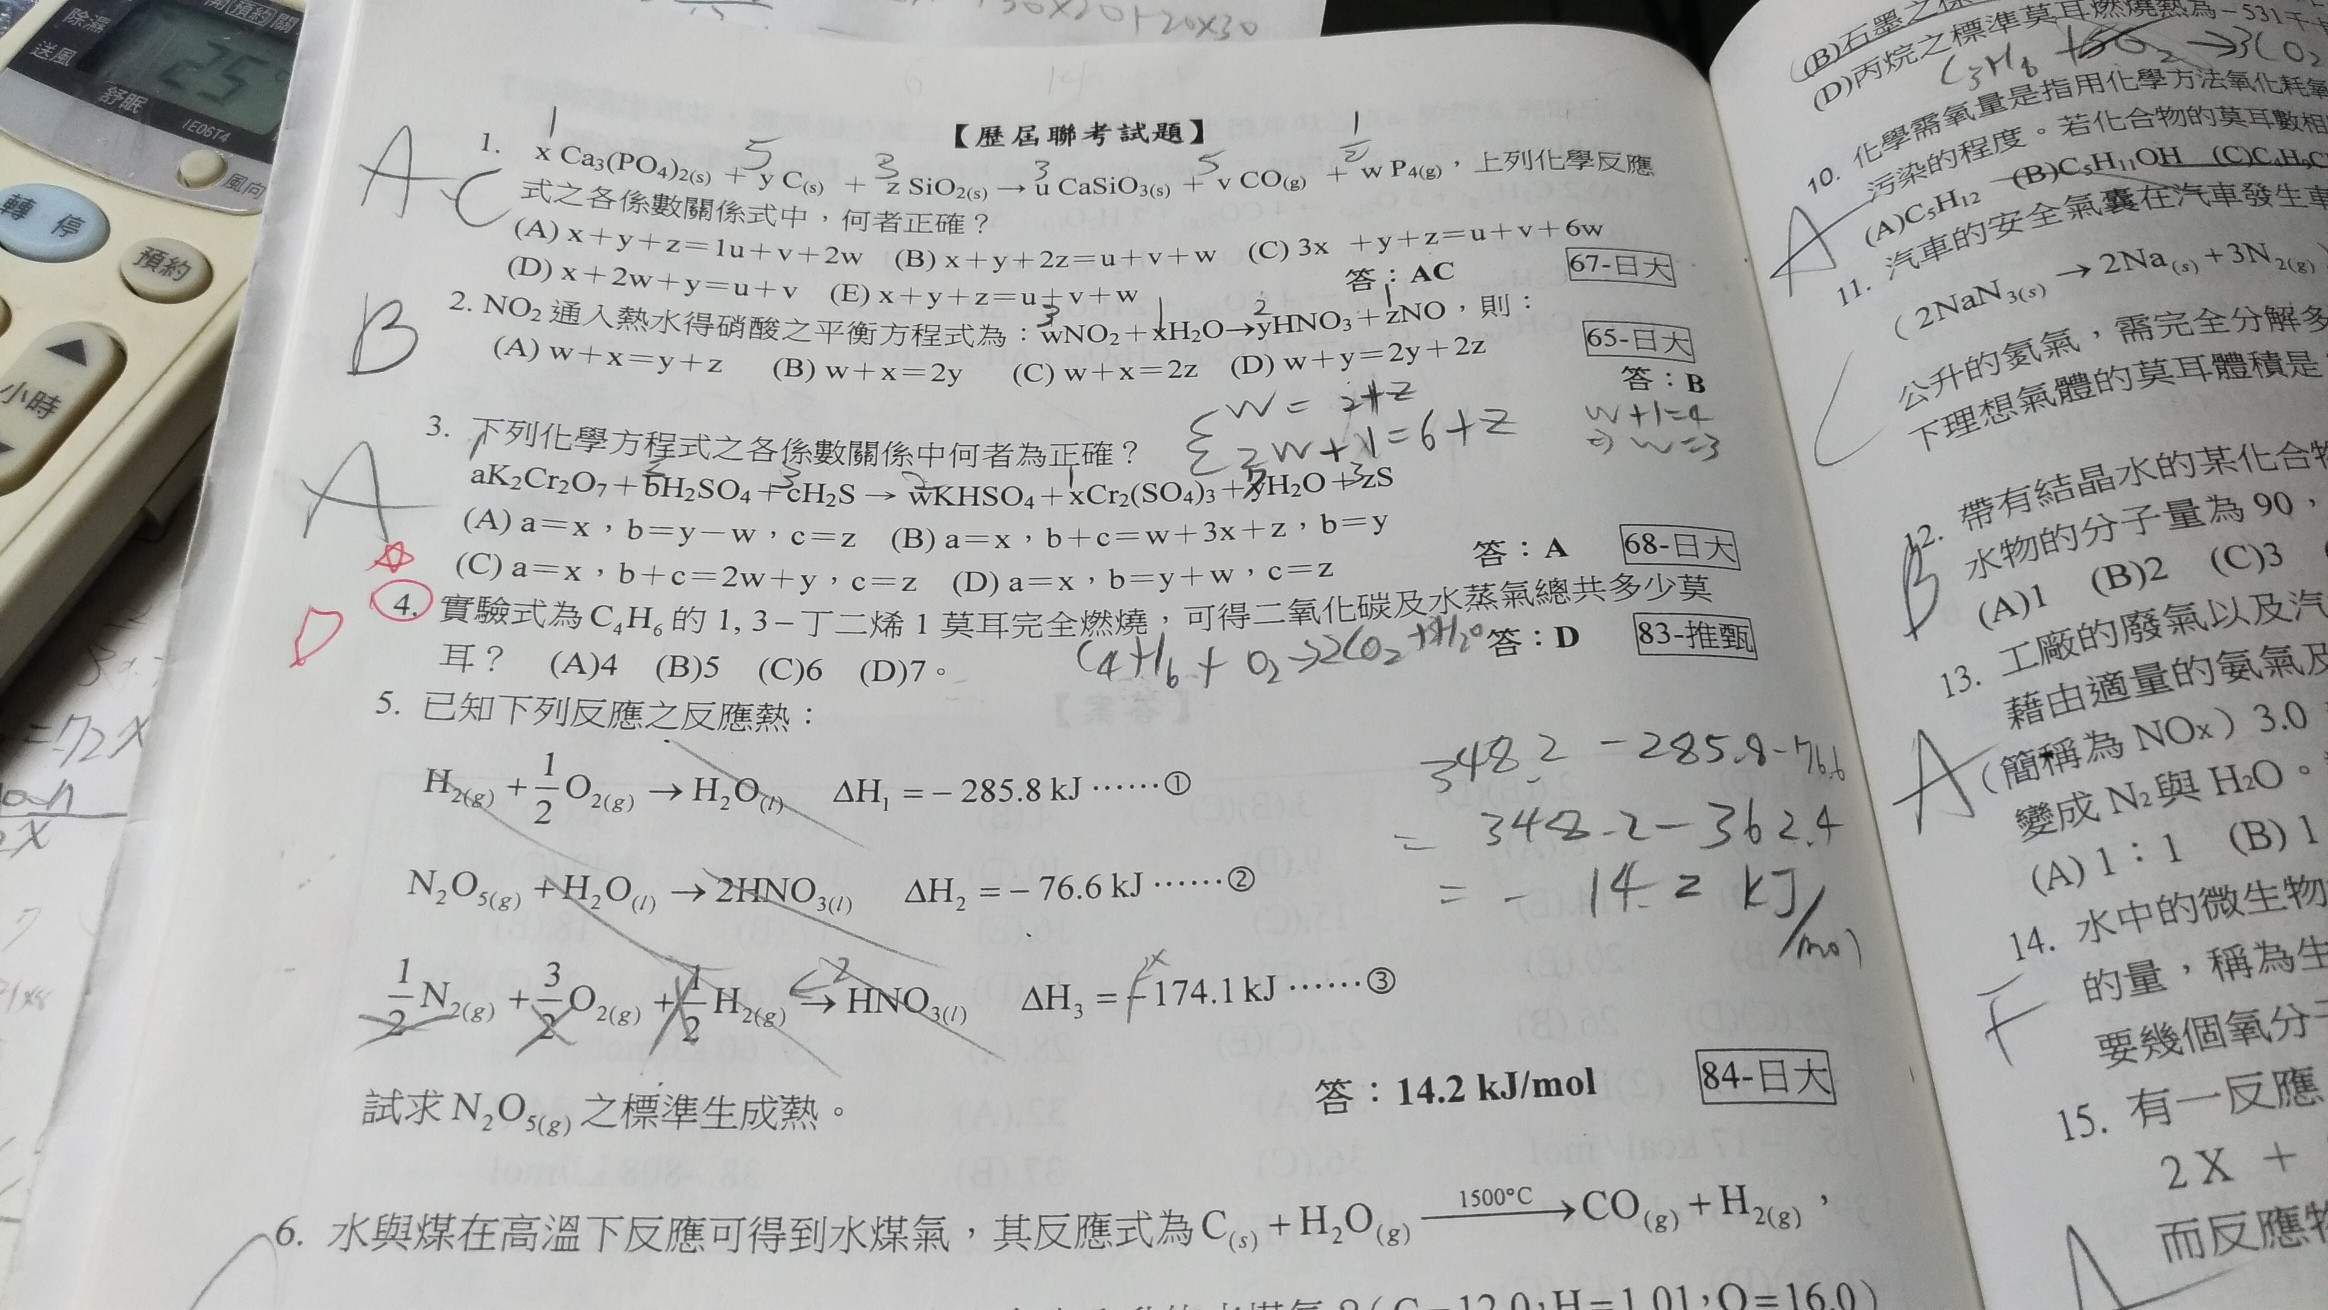 30×20+20×30
預約
除濕
送風
25°
舒眠
IE06T4
風向
轉 停
預約
小時
【歷屆聯考試題】
1 5 3 3 5 1/2
A C
1. x Ca3(PO4)2(s) + y C(s) + z SiO2(s) → u CaSiO3(s) + v CO(g) + w P4(g)，上列化學反應
式之各係數關係式中，何者正確？
(A) x+y+z=1u+v+2w (B) x+y+2z=u+v+w (C) 3x +y+z=u+v+6w
(D) x+2w+y=u+v (E) x+y+z=u+v+w 答：AC 67-日大
B
3 1 2 1
2. NO2 通入熱水得硝酸之平衡方程式為：wNO2+xH2O→yHNO3+zNO，則：
(A) w+x=y+z (B) w+x=2y (C) w+x=2z (D) w+y=2y+2z 65-日大
答：B
w = 2+z
2w+1=6+z
w+1=4
⇒ w=3
A
3. 下列化學方程式之各係數關係中何者為正確？
aK2Cr2O7+bH2SO4+cH2S → wKHSO4+xCr2(SO4)3+yH2O+zS
(A) a=x，b=y−w，c=z (B) a=x，b+c=w+3x+z，b=y
(C) a=x，b+c=2w+y，c=z (D) a=x，b=y+w，c=z 答：A 68-日大
D
4. 實驗式為 C4H6 的 1, 3−丁二烯 1 莫耳完全燃燒，可得二氧化碳及水蒸氣總共多少莫
耳？ (A)4 (B)5 (C)6 (D)7。 答：D 83-推甄
C4H6 + O2→2CO2+H2O
5. 已知下列反應之反應熱：
H2(g) + 1/2 O2(g) → H2O(l) ΔH1 = − 285.8 kJ ……①
N2O5(g) + H2O(l) → 2HNO3(l) ΔH2 = − 76.6 kJ ……②
1/2 N2(g) + 3/2 O2(g) + 1/2 H2(g) → HNO3(l) ΔH3 = −174.1 kJ ……③
348.2 − 285.8−76.6
= 348.2 − 362.4
= − 14.2 kJ/mol
試求 N2O5(g) 之標準生成熱。 答：14.2 kJ/mol 84-日大
6. 水與煤在高溫下反應可得到水煤氣，其反應式為 C(s) + H2O(g) 1500°C → CO(g) + H2(g)，
(C=12.0，H=1.01，O=16.0)
(B)石墨之
(D)丙烷之標準莫耳燃燒熱為−531千
10. 化學需氧量是指用化學方法氧化耗氧
污染的程度。若化合物的莫耳數相
(A)C5H12 (B)C5H11OH
A
11. 汽車的安全氣囊在汽車發生車
(2NaN3(s) → 2Na(s) + 3N2(g)
公升的氮氣，需完全分解多
下理想氣體的莫耳體積是
B
12. 帶有結晶水的某化合物
水物的分子量為 90，
(A)1 (B)2 (C)3
13. 工廠的廢氣以及汽
藉由適量的氨氣及
A
(簡稱為 NOx) 3.0
變成 N2 與 H2O。
(A) 1：1 (B) 1
14. 水中的微生物
的量，稱為生
要幾個氧分子
15. 有一反應
2X +
而反應物